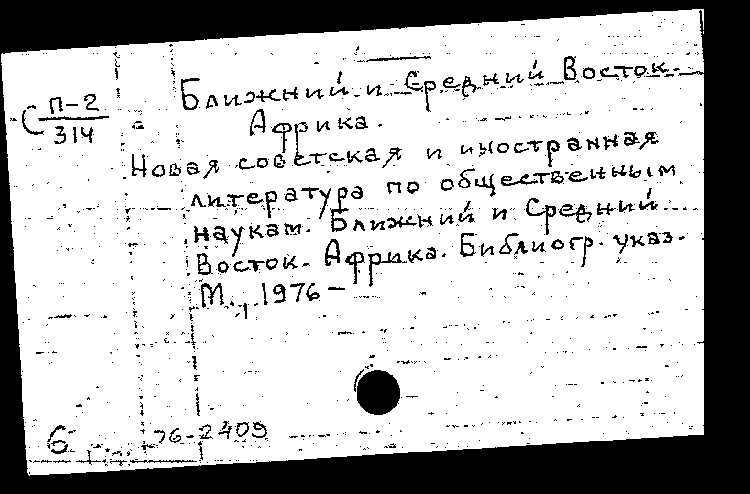 С П-2
314
Ближний и Средний Восток.
Африка.
Новая советская и иностранная
литература по общественным
наукам. Ближний и Средний
Восток. Африка. Библиогр. указ.
М., 1976 –
б
76-2409